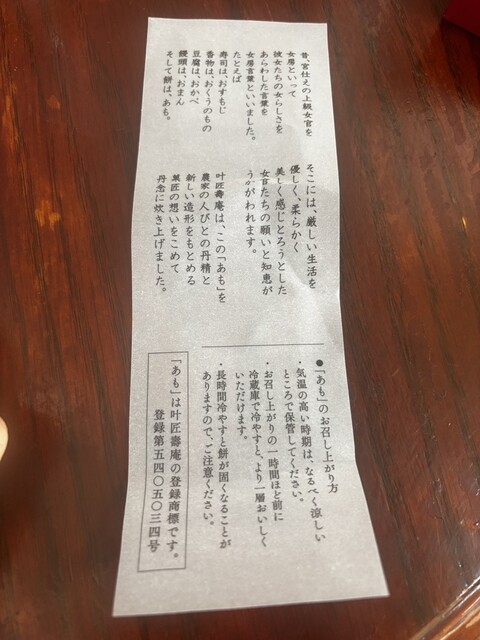 昔、宮仕えの上級女官を
女房といって
彼女たちの女らしさを
あらわした言葉を
女房言葉といいました。
たとえば
寿司は、おすもじ
香物は、おくうのもの
豆腐は、おかべ
饅頭は、おまん
そして餅は、あも。
そこには、厳しい生活を
優しく、柔らかく
美しく感じとろうとした
女官たちの願いと知恵が
うかがわれます。
叶匠壽庵は、この「あも」を
農家の人びとの丹精と
新しい造形をもとめる
菓匠の想いをこめて
丹念に炊き上げました。
●「あも」のお召し上がり方
・気温の高い時期は、なるべく涼しい
ところで保管してください。
・お召し上がりの一時間ほど前に
冷蔵庫で冷やすと、より一層おいしく
いただけます。
・長時間冷やすと餅が固くなることが
ありますので、ご注意ください。
「あも」は叶匠壽庵の登録商標です。
登録第五四〇五〇三四号